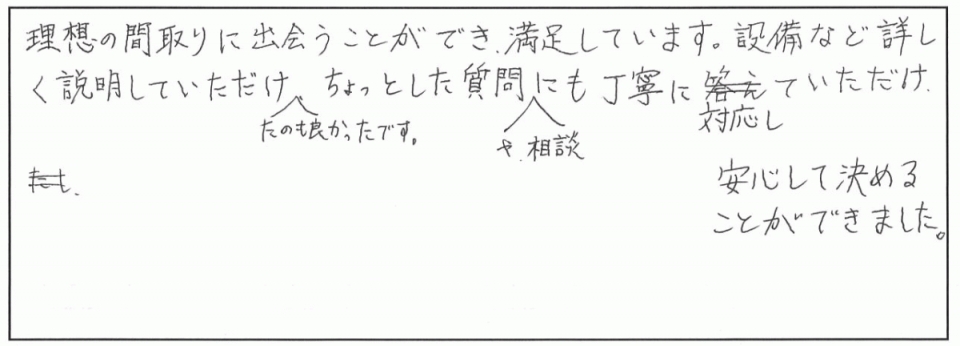 理想の間取りに出会うことができ、満足しています。設備など詳し
く説明していただけ、ちょっとした質問にも丁寧に答えていただけ、
たのも良かったです。
や、相談
対応し
安心して決める
ことができました。